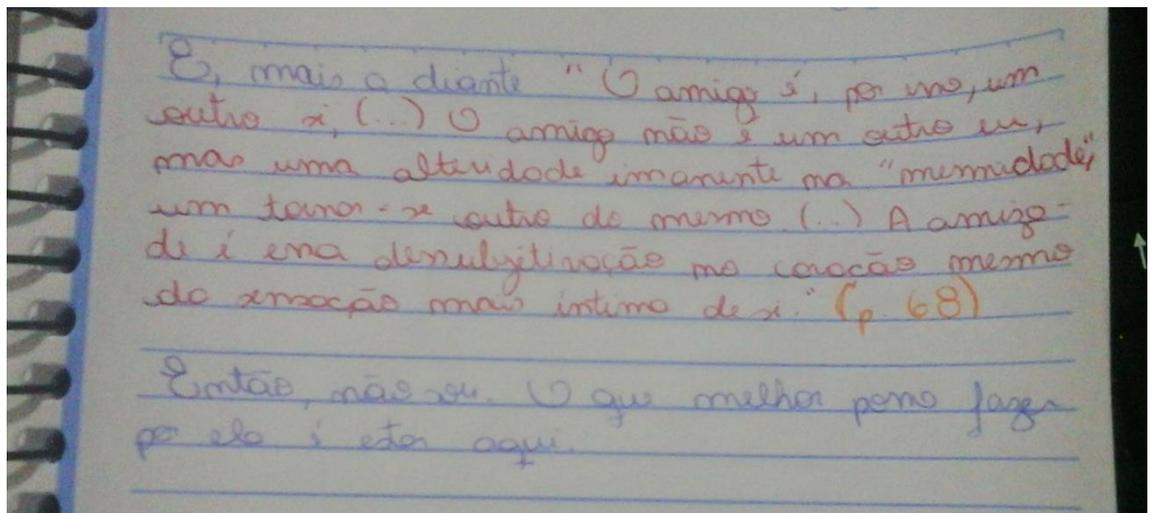 E, mais a diante "O amigo é, por isso, um
outro si, (...) O amigo não é um outro eu,
mas uma alteridade imanente na "mesmidade",
um tornar-se outro do mesmo (...) A amiza-
de é essa dessubjetivação no coração mesmo
da sensação mais íntima de si." (p. 68)
Então, não sou. O que melhor posso fazer
por ela é estar aqui.